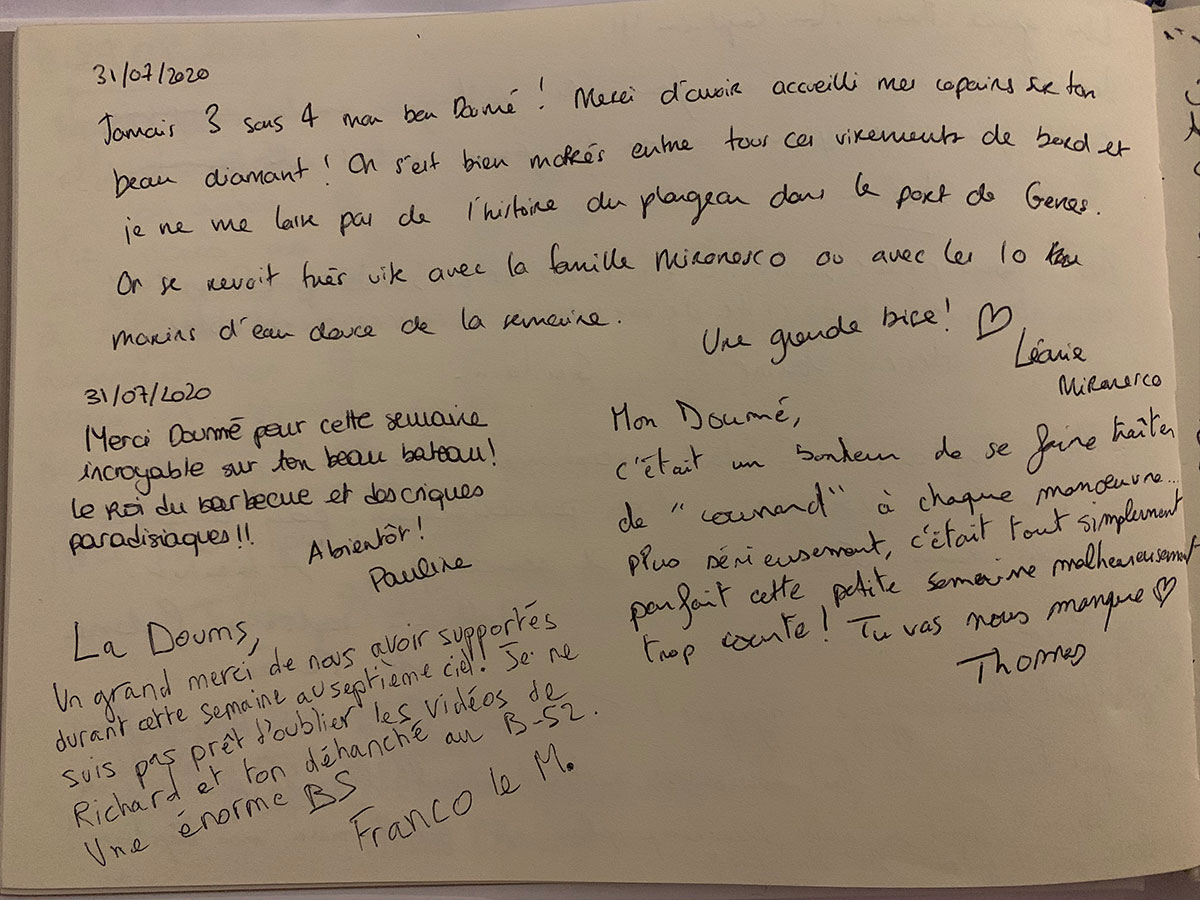 31/07/2020
Jamais 3 sans 4 mon beau Doumé ! Merci d'avoir accueilli mes copains sur ton
beau diamant ! On s'est bien marrés entre tous ces virements de bord et
je ne me lasse pas de l'histoire du plongeon dans le port de Genes.
On se revoit très vite avec la famille Mironesco ou avec les 10
marins d'eau douce de la semaine.
Une grande bise ! ♡
Léanie
Mironesco
31/07/2020
Merci Doumé pour cette semaine
incroyable sur ton beau bateau!
Le roi du barbecue et des criques
paradisiaques !!
A bientôt !
Pauline
Mon Doumé,
c'était un bonheur de se faire traîter
de "counard" à chaque manoeuvre...
plus sérieusement, c'était tout simplement
parfait cette petite semaine malheureusement
trop courte ! Tu vas nous manque ♡
Thomas
La Doums,
Un grand merci de nous avoir supportés
durant cette semaine au septième ciel ! Je ne
suis pas prêt d'oublier les vidéos de
Richard et ton déhanché au B-52.
Une énorme BS
Franco le M.